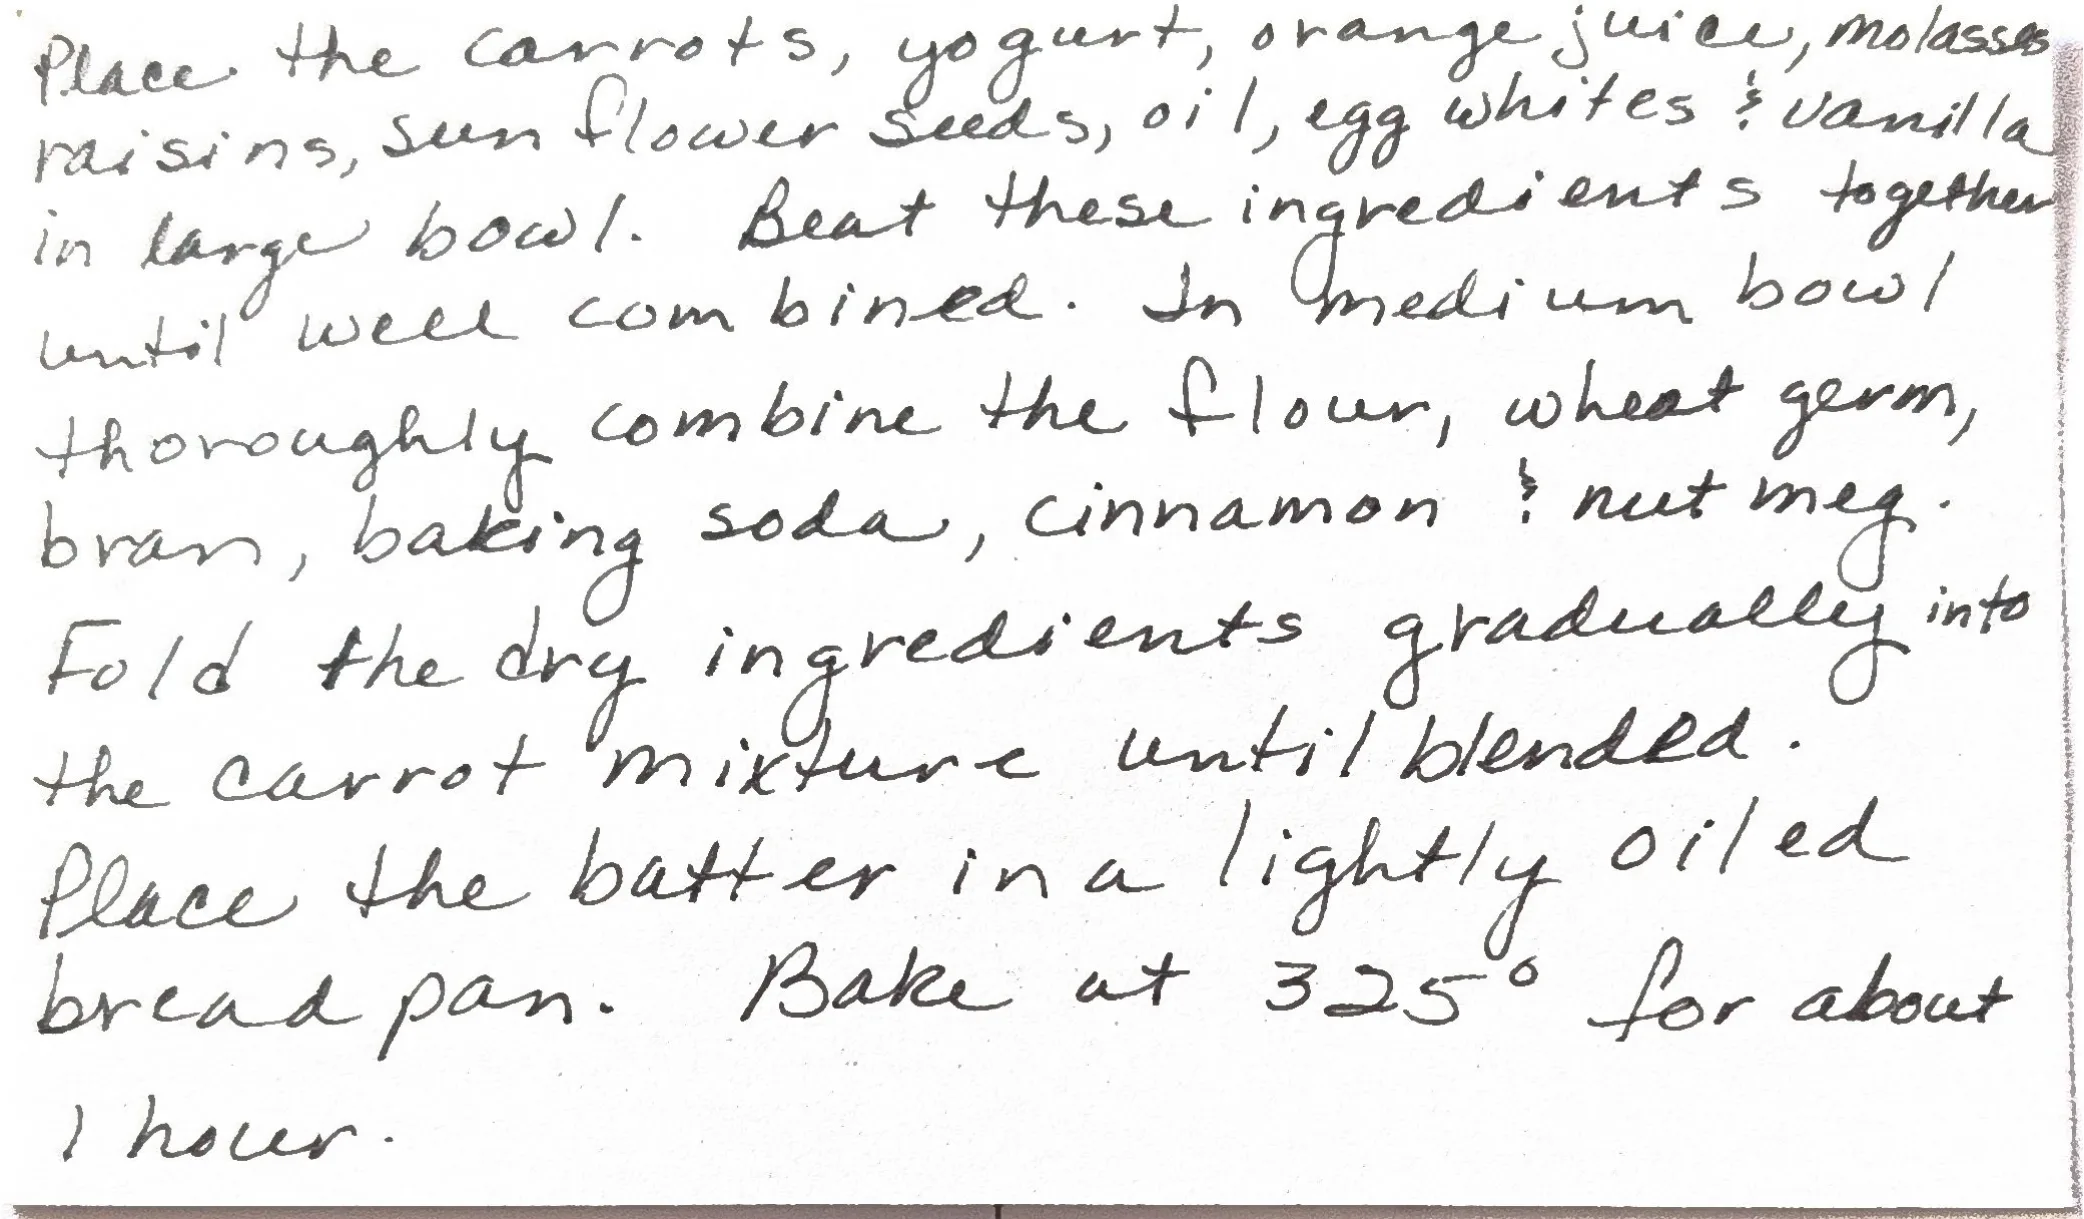 Place the carrots, yogurt, orange juice, molasses
raisins, sunflower seeds, oil, egg whites & vanilla
in large bowl. Beat these ingredients together
until well combined. In medium bowl
thoroughly combine the flour, wheat germ,
bran, baking soda, cinnamon & nutmeg.
Fold the dry ingredients gradually into
the carrot mixture until blended.
Place the batter in a lightly oiled
bread pan. Bake at 325° for about
1 hour.